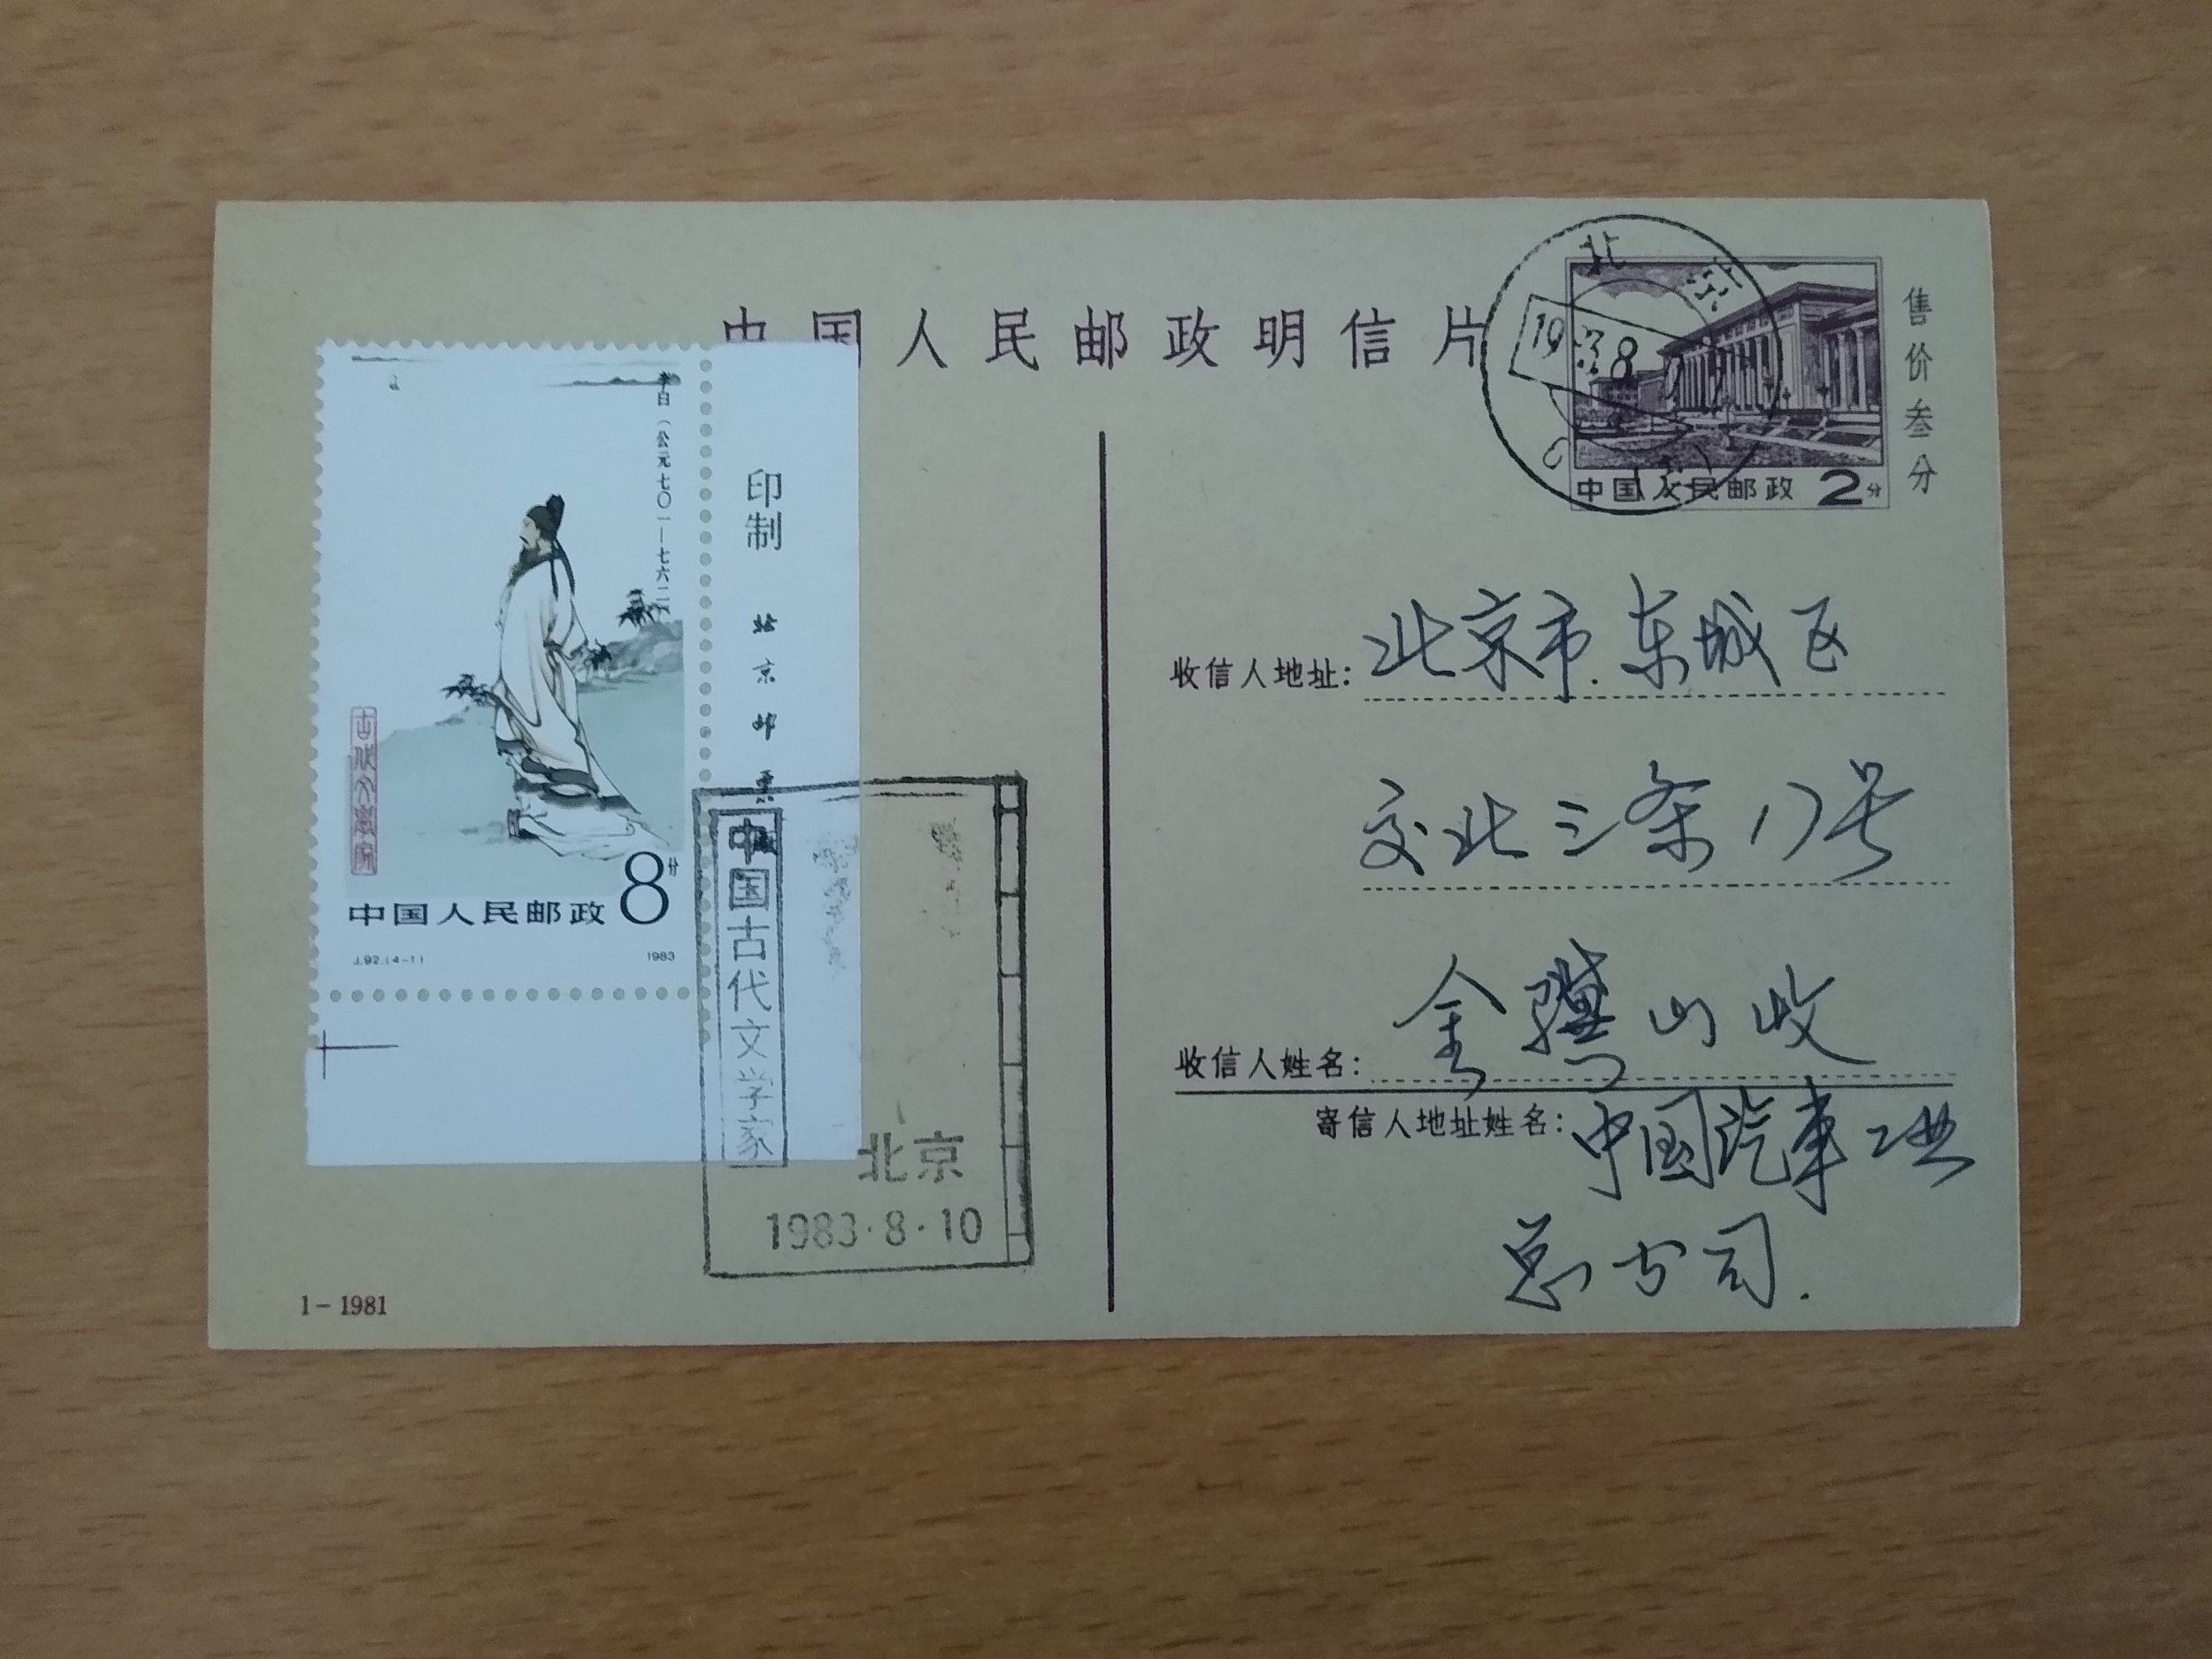 中国人民邮政明信片
售价叁分
北京
中国人民邮政 2分
李白（公元七〇一—七六二）
古代文学家
8分
中国人民邮政
J.92.(4-1) 1983
印制
北京邮票厂
中国古代文学家
北京
1983·8·10
收信人地址：北京市.东城区
交北三条17号
收信人姓名：金骥山收
寄信人地址姓名：中国汽车工业
总公司.
1-1981